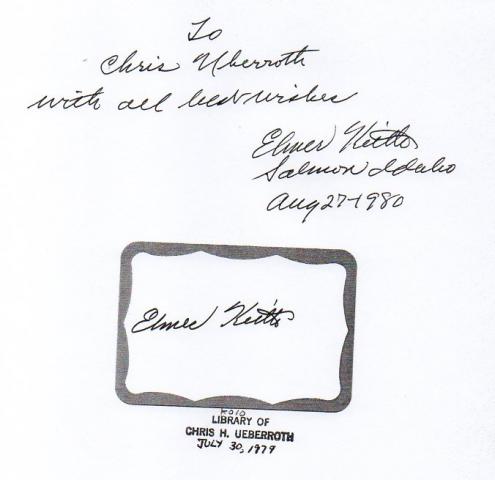 To
Chris Uberroth
with all best wishes
Elmer Keith
Salmon Idaho
Aug 27-1980
Elmer Keith
LIBRARY OF
CHRIS H. UEBERROTH
JULY 30, 1979